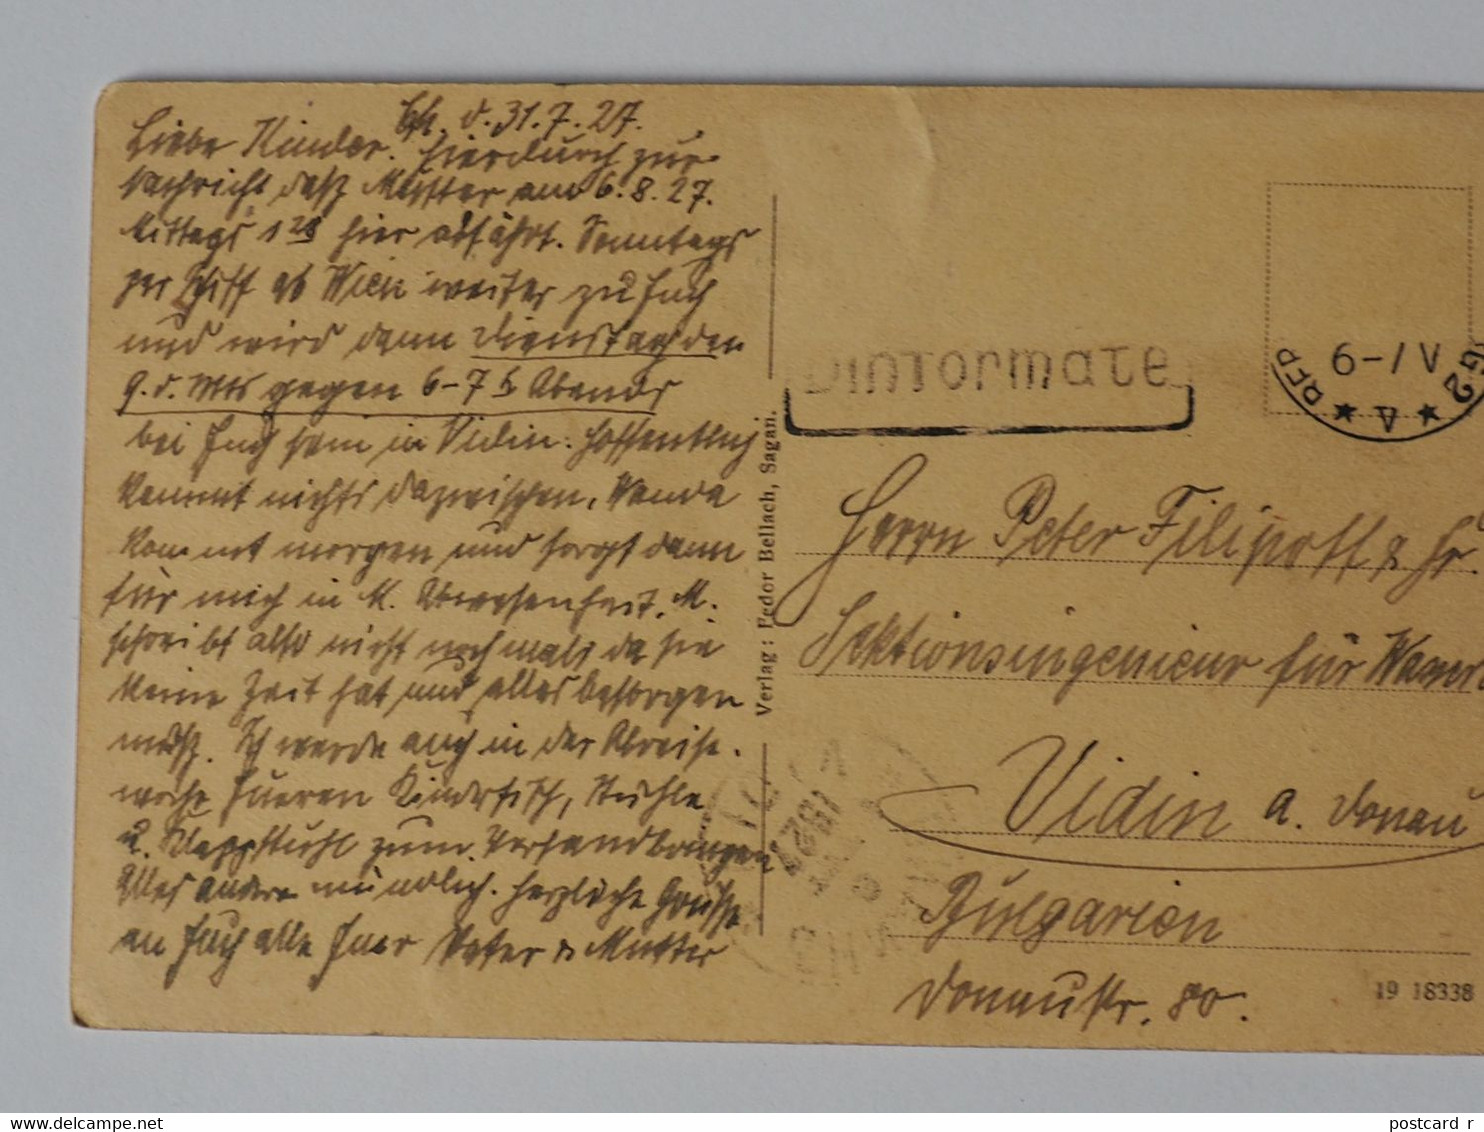 d. 31.7.27.
Liebe Kinder. Hierdurch zur
Nachricht daß Mutter am 6.8.27.
Mittags 1 28 hier abfährt. Sonntags
per Schiff ab Wien weiter zu Euch
und wird dann Dienstag den
9. d. Mts gegen 6-7 h Abends
bei Euch sein in Vidin. Hoffentlich
kommt nichts dazwischen. Wanda
kommt morgen und sorgt dann
für mich in M. Abwesenheit. M.
schreibt also nicht nochmals da sie
keine Zeit hat und alles besorgen
muß. Ich werde auch in der Abreise-
woche Eueren Kindertisch, Stühle
u. Klappstuhl zum Versand bringen
Alles andere mündlich. Herzliche Grüsse
an Euch alle Euer Vater & Mutter
Verlag: Fedor Bellach, Sagan.
informate
6-7 V
25
A
Herrn Peter Filipoff & Fr.
Sektionsingenieur für
Vidin a. Donau
Bulgarien
Donaustr. 80.
19 18338
delcampe.net
postcard_r